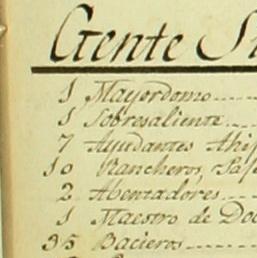 Gente
1 Mayordomo
1 Sobresaliente
7 Ayudantes
10 Rancheros
2 Abentadores
1 Maestro de
35 Bacieros